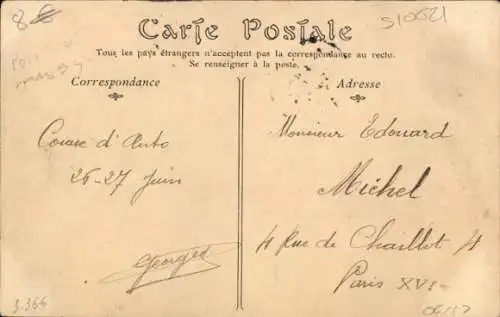 8
Carte Postale
S10621
Tous les pays étrangers n'acceptent pas la correspondance au recto.
Se renseigner à la poste.
Correspondance
Adresse
Course d'Auto
26-27 Juin
Georges
Monsieur Edouard
Michel
4 Rue de Chaillot 4
Paris XVIe
3.366